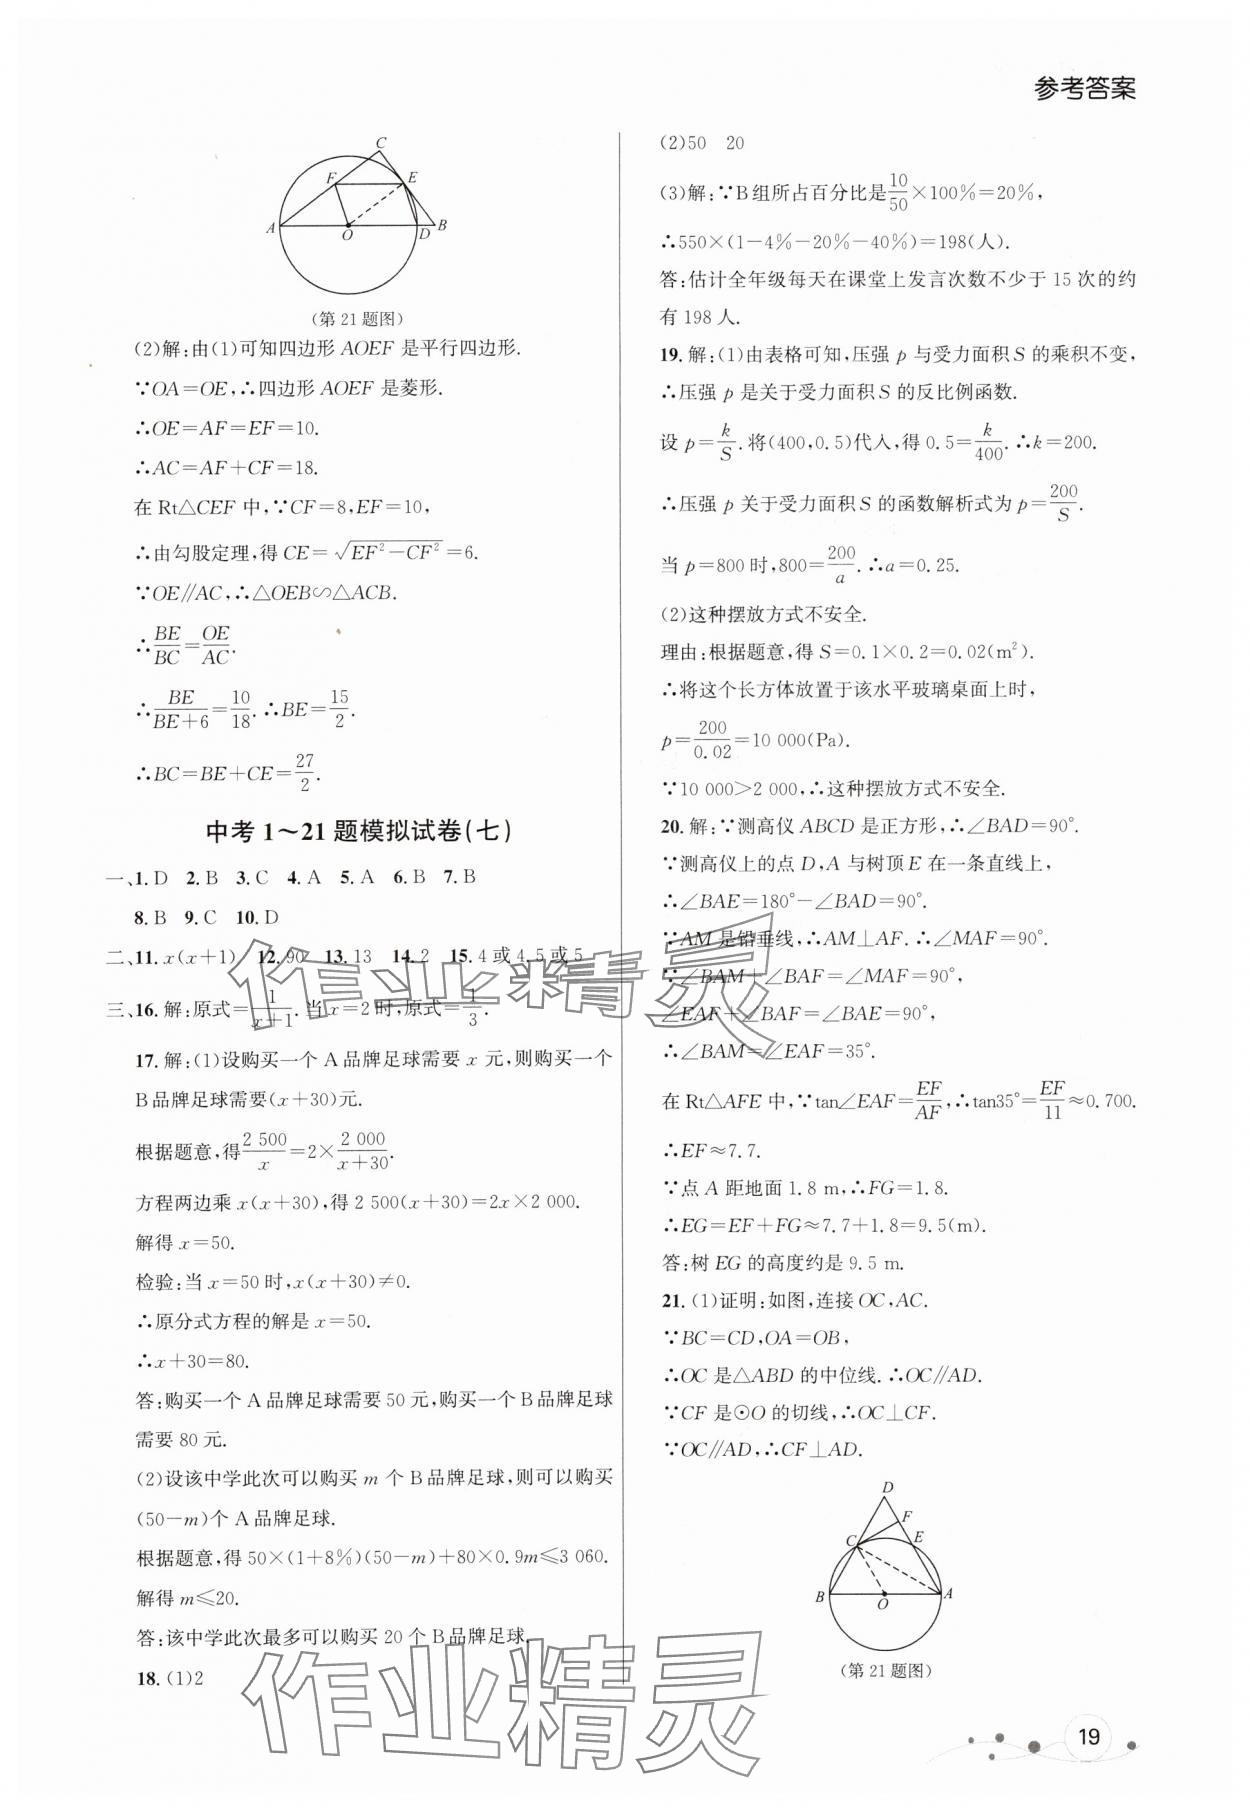 参考答案
C
F
E
A
O
D
B
(第 21 题图)
(2)解:由(1)可知四边形 AOEF 是平行四边形.
∵OA=OE,∴四边形 AOEF 是菱形.
∴OE=AF=EF=10.
∴AC=AF+CF=18.
在 Rt△CEF 中,∵CF=8,EF=10,
∴由勾股定理,得 CE=√(EF²-CF²)=6.
∵OE∥AC,∴△OEB∽△ACB.
∴BE/BC=OE/AC.
∴BE/(BE+6)=10/18.∴BE=15/2.
∴BC=BE+CE=27/2.
中考 1～21 题模拟试卷(七)
一、1. D 2. B 3. C 4. A 5. A 6. B 7. B
8. B 9. C 10. D
二、11. x(x+1) 12. 90 13. 13 14. 2 15. 4 或 4.5 或 5
三、16. 解:原式=1/(x+1). 当 x=2 时,原式=1/3.
17. 解:(1)设购买一个 A 品牌足球需要 x 元,则购买一个
B 品牌足球需要(x+30)元.
根据题意,得2 500/x=2×2 000/(x+30).
方程两边乘 x(x+30),得 2 500(x+30)=2x×2 000.
解得 x=50.
检验:当 x=50 时,x(x+30)≠0.
∴原分式方程的解是 x=50.
∴x+30=80.
答:购买一个 A 品牌足球需要 50 元,购买一个 B 品牌足球
需要 80 元.
(2)设该中学此次可以购买 m 个 B 品牌足球,则可以购买
(50-m)个 A 品牌足球.
根据题意,得 50×(1+8%)(50-m)+80×0.9m≤3 060.
解得 m≤20.
答:该中学此次最多可以购买 20 个 B 品牌足球.
18. (1)2
(2)50 20
(3)解:∵B 组所占百分比是10/50×100%=20%,
∴550×(1-4%-20%-40%)=198(人).
答:估计全年级每天在课堂上发言次数不少于 15 次的约
有 198 人.
19. 解:(1)由表格可知,压强 p 与受力面积 S 的乘积不变,
∴压强 p 是关于受力面积 S 的反比例函数.
设 p=k/S. 将(400,0.5)代入,得 0.5=k/400. ∴k=200.
∴压强 p 关于受力面积 S 的函数解析式为 p=200/S.
当 p=800 时,800=200/a. ∴a=0.25.
(2)这种摆放方式不安全.
理由:根据题意,得 S=0.1×0.2=0.02(m²).
∴将这个长方体放置于该水平玻璃桌面上时,
p=200/0.02=10 000(Pa).
∵10 000>2 000,∴这种摆放方式不安全.
20. 解:∵测高仪 ABCD 是正方形,∴∠BAD=90°.
∵测高仪上的点 D,A 与树顶 E 在一条直线上,
∴∠BAE=180°-∠BAD=90°.
∵AM 是铅垂线,∴AM⊥AF. ∴∠MAF=90°.
∵∠BAM+∠BAF=∠MAF=90°,
∠EAF+∠BAF=∠BAE=90°,
∴∠BAM=∠EAF=35°.
在 Rt△AFE 中,∵tan∠EAF=EF/AF,∴tan35°=EF/11≈0.700.
∴EF≈7.7.
∵点 A 距地面 1.8 m,∴FG=1.8.
∴EG=EF+FG≈7.7+1.8=9.5(m).
答:树 EG 的高度约是 9.5 m.
21. (1)证明:如图,连接 OC,AC.
∵BC=CD,OA=OB,
∴OC 是△ABD 的中位线. ∴OC∥AD.
∵CF 是⊙O 的切线,∴OC⊥CF.
∵OC∥AD,∴CF⊥AD.
D
F
C
E
B
O
A
(第 21 题图)
作业精灵
作业精灵
19